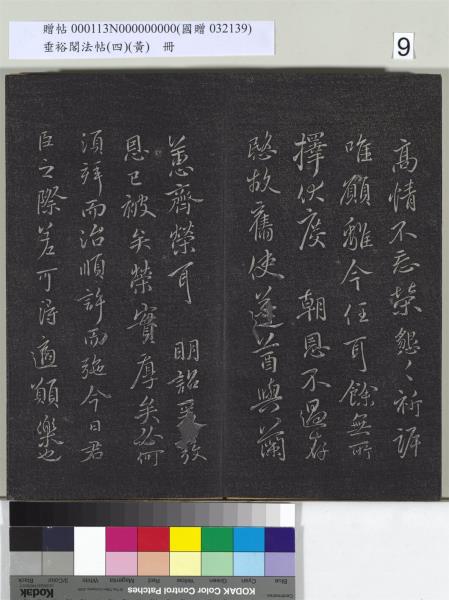 贈帖 000113N000000000(國贈 032139)
垂裕閣法帖(四)(黃) 冊
9
高情不忘榮懇〻祈訴
唯願離今任可餘無所
擇伏度 朝恩不過存
愍故舊使蓬首與蘭
蕙齊榮耳 明詔爰發
恩已被矣榮實厚矣必何
須拜而治順許而施今日君
臣之際差可得適願樂也
Blue
Cyan
Green
Yellow
Red
Magenta
White
3/Color
Black
KODAK Color Control Patches
Kodak